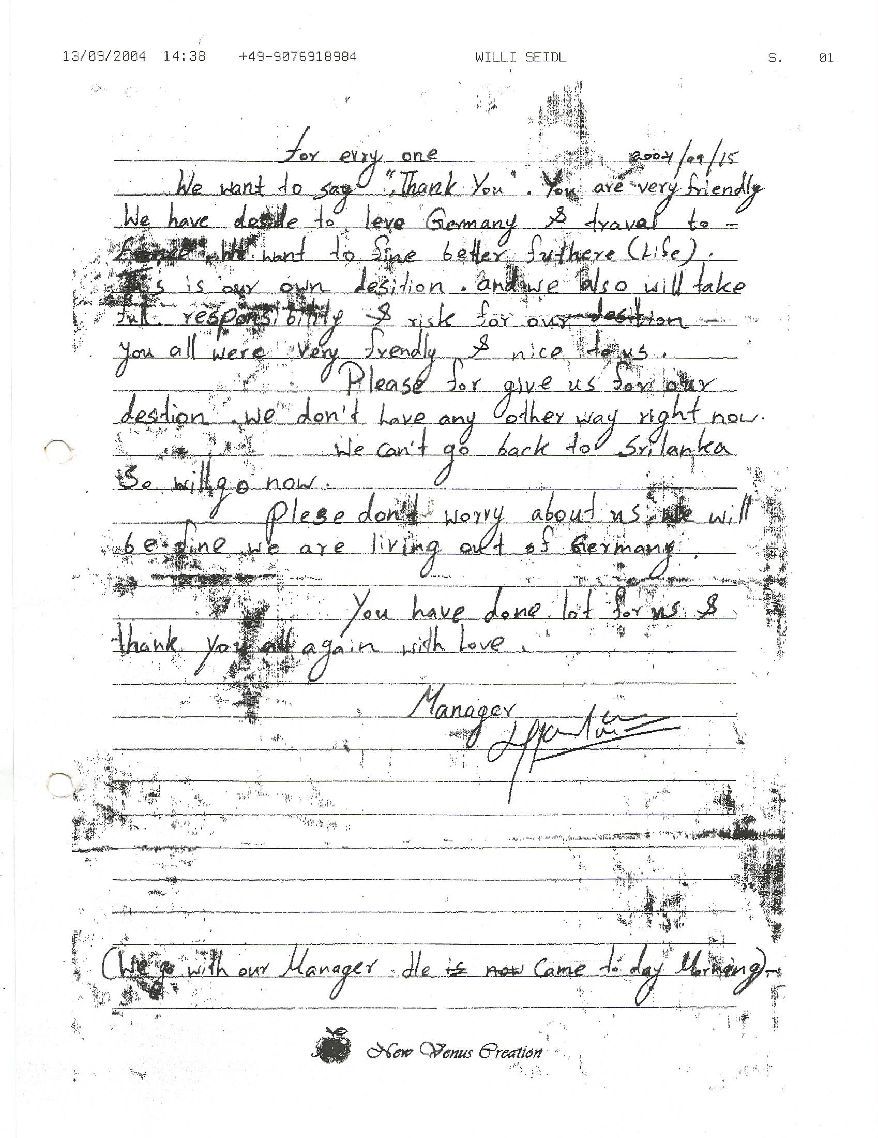 13/09/2004 14:38 +49-9076918984 WILLI SEIDL S. 01
for evry one 2004/09/15
We want to say "Thank You". You are very friendly
We have deside to leve Germany & travel to -
France We want to fine better futhere (Life).
is is our own desition. and we also will take
full responsibility & risk for our desition -
you all were very frendly & nice to us.
Please for give us for our
desition we don't have any other way right now.
We can't go back to Srilanka
So will go now.
Plese don't worry about us, we will
be fine we are living out of Germany.
You have done lot for us &
thank you all again with love.
Manager
(We go with our Manager. He is now Came to day Morning)
New Venus Creation